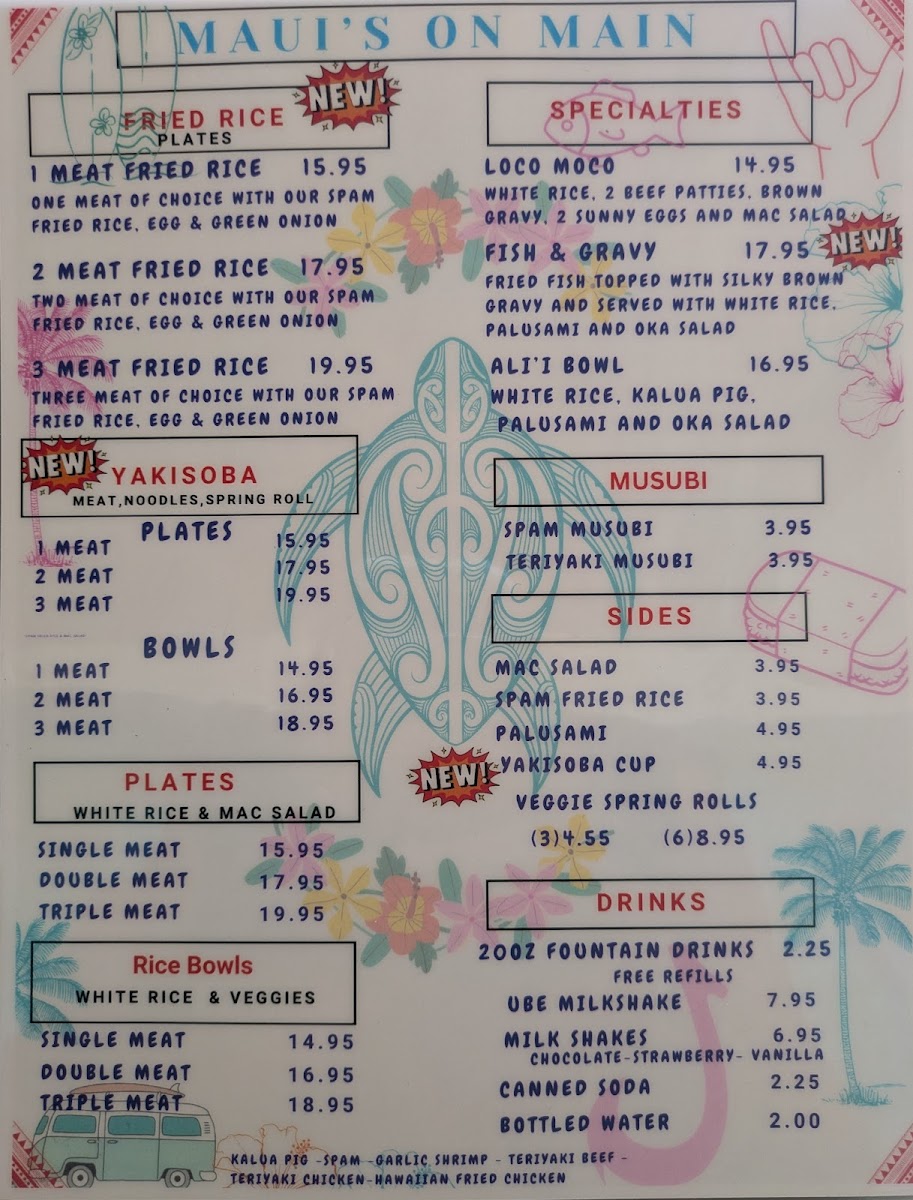 MAUI'S ON MAIN
FRIED RICE
PLATES
NEW!
1 MEAT FRIED RICE 15.95
ONE MEAT OF CHOICE WITH OUR SPAM
FRIED RICE, EGG & GREEN ONION
2 MEAT FRIED RICE 17.95
TWO MEAT OF CHOICE WITH OUR SPAM
FRIED RICE, EGG & GREEN ONION
3 MEAT FRIED RICE 19.95
THREE MEAT OF CHOICE WITH OUR SPAM
FRIED RICE, EGG & GREEN ONION
NEW!
YAKISOBA
MEAT,NOODLES,SPRING ROLL
PLATES
1 MEAT 15.95
2 MEAT 17.95
3 MEAT 19.95
BOWLS
1 MEAT 14.95
2 MEAT 16.95
3 MEAT 18.95
PLATES
WHITE RICE & MAC SALAD
SINGLE MEAT 15.95
DOUBLE MEAT 17.95
TRIPLE MEAT 19.95
Rice Bowls
WHITE RICE & VEGGIES
SINGLE MEAT 14.95
DOUBLE MEAT 16.95
TRIPLE MEAT 18.95
SPECIALTIES
LOCO MOCO 14.95
WHITE RICE, 2 BEEF PATTIES, BROWN
GRAVY, 2 SUNNY EGGS AND MAC SALAD
FISH & GRAVY 17.95 NEW!
FRIED FISH TOPPED WITH SILKY BROWN
GRAVY AND SERVED WITH WHITE RICE.
PALUSAMI AND OKA SALAD
ALI'I BOWL 16.95
WHITE RICE, KALUA PIG,
PALUSAMI AND OKA SALAD
MUSUBI
SPAM MUSUBI 3.95
TERIYAKI MUSUBI 3.95
SIDES
MAC SALAD 3.95
SPAM FRIED RICE 3.95
PALUSAMI 4.95
NEW! YAKISOBA CUP 4.95
VEGGIE SPRING ROLLS
(3)4.55 (6)8.95
DRINKS
20OZ FOUNTAIN DRINKS 2.25
FREE REFILLS
UBE MILKSHAKE 7.95
MILK SHAKES 6.95
CHOCOLATE-STRAWBERRY- VANILLA
CANNED SODA 2.25
BOTTLED WATER 2.00
KALUA PIG -SPAM -GARLIC SHRIMP - TERIYAKI BEEF -
TERIYAKI CHICKEN-HAWAIIAN FRIED CHICKEN